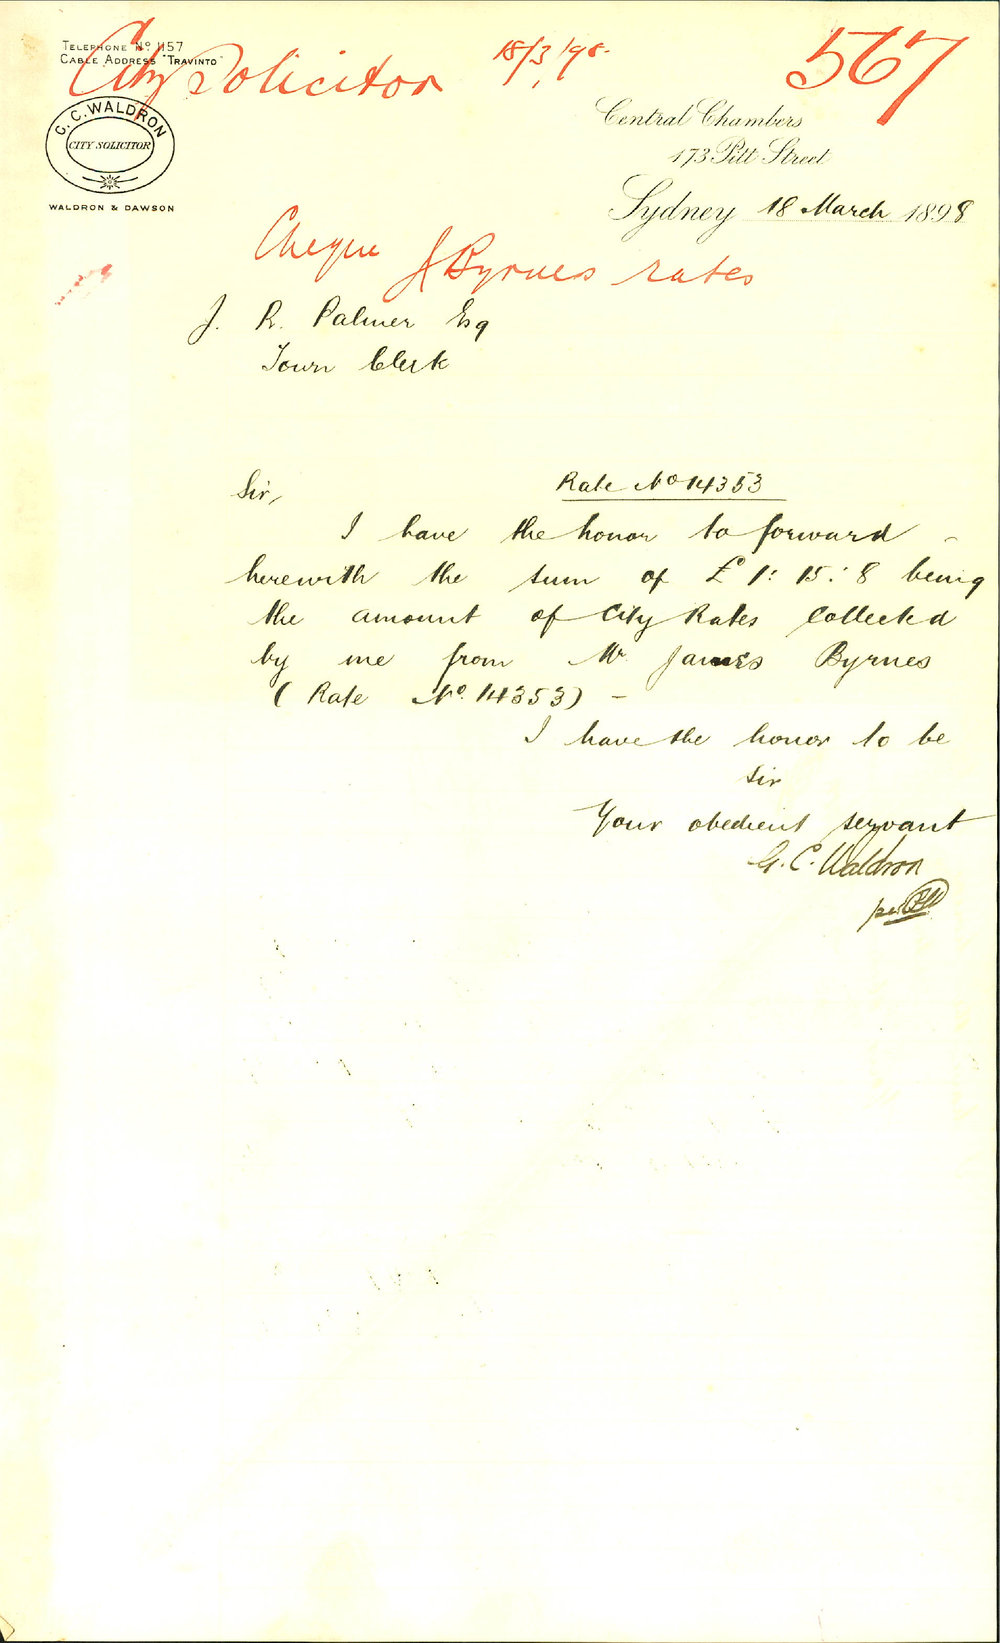 TELEPHONE No 1157
CABLE ADDRESS "TRAVINTO"
City Solicitor
18/3/98.
567
G. C. WALDRON
CITY SOLICITOR
WALDRON & DAWSON
Central Chambers
173 Pitt Street
Sydney 18 March 1898
Cheque J Byrnes rates
J. R. Palmer Esq
Town Clerk
Sir, Rate No 14353
I have the honor to forward -
herewith the sum of £1: 15: 8 being
the amount of City Rates Collected
by me from Mr James Byrnes
(Rate No. 14353) -
I have the honor to be
Sir
Your obedient servant
G. C. Waldron
per